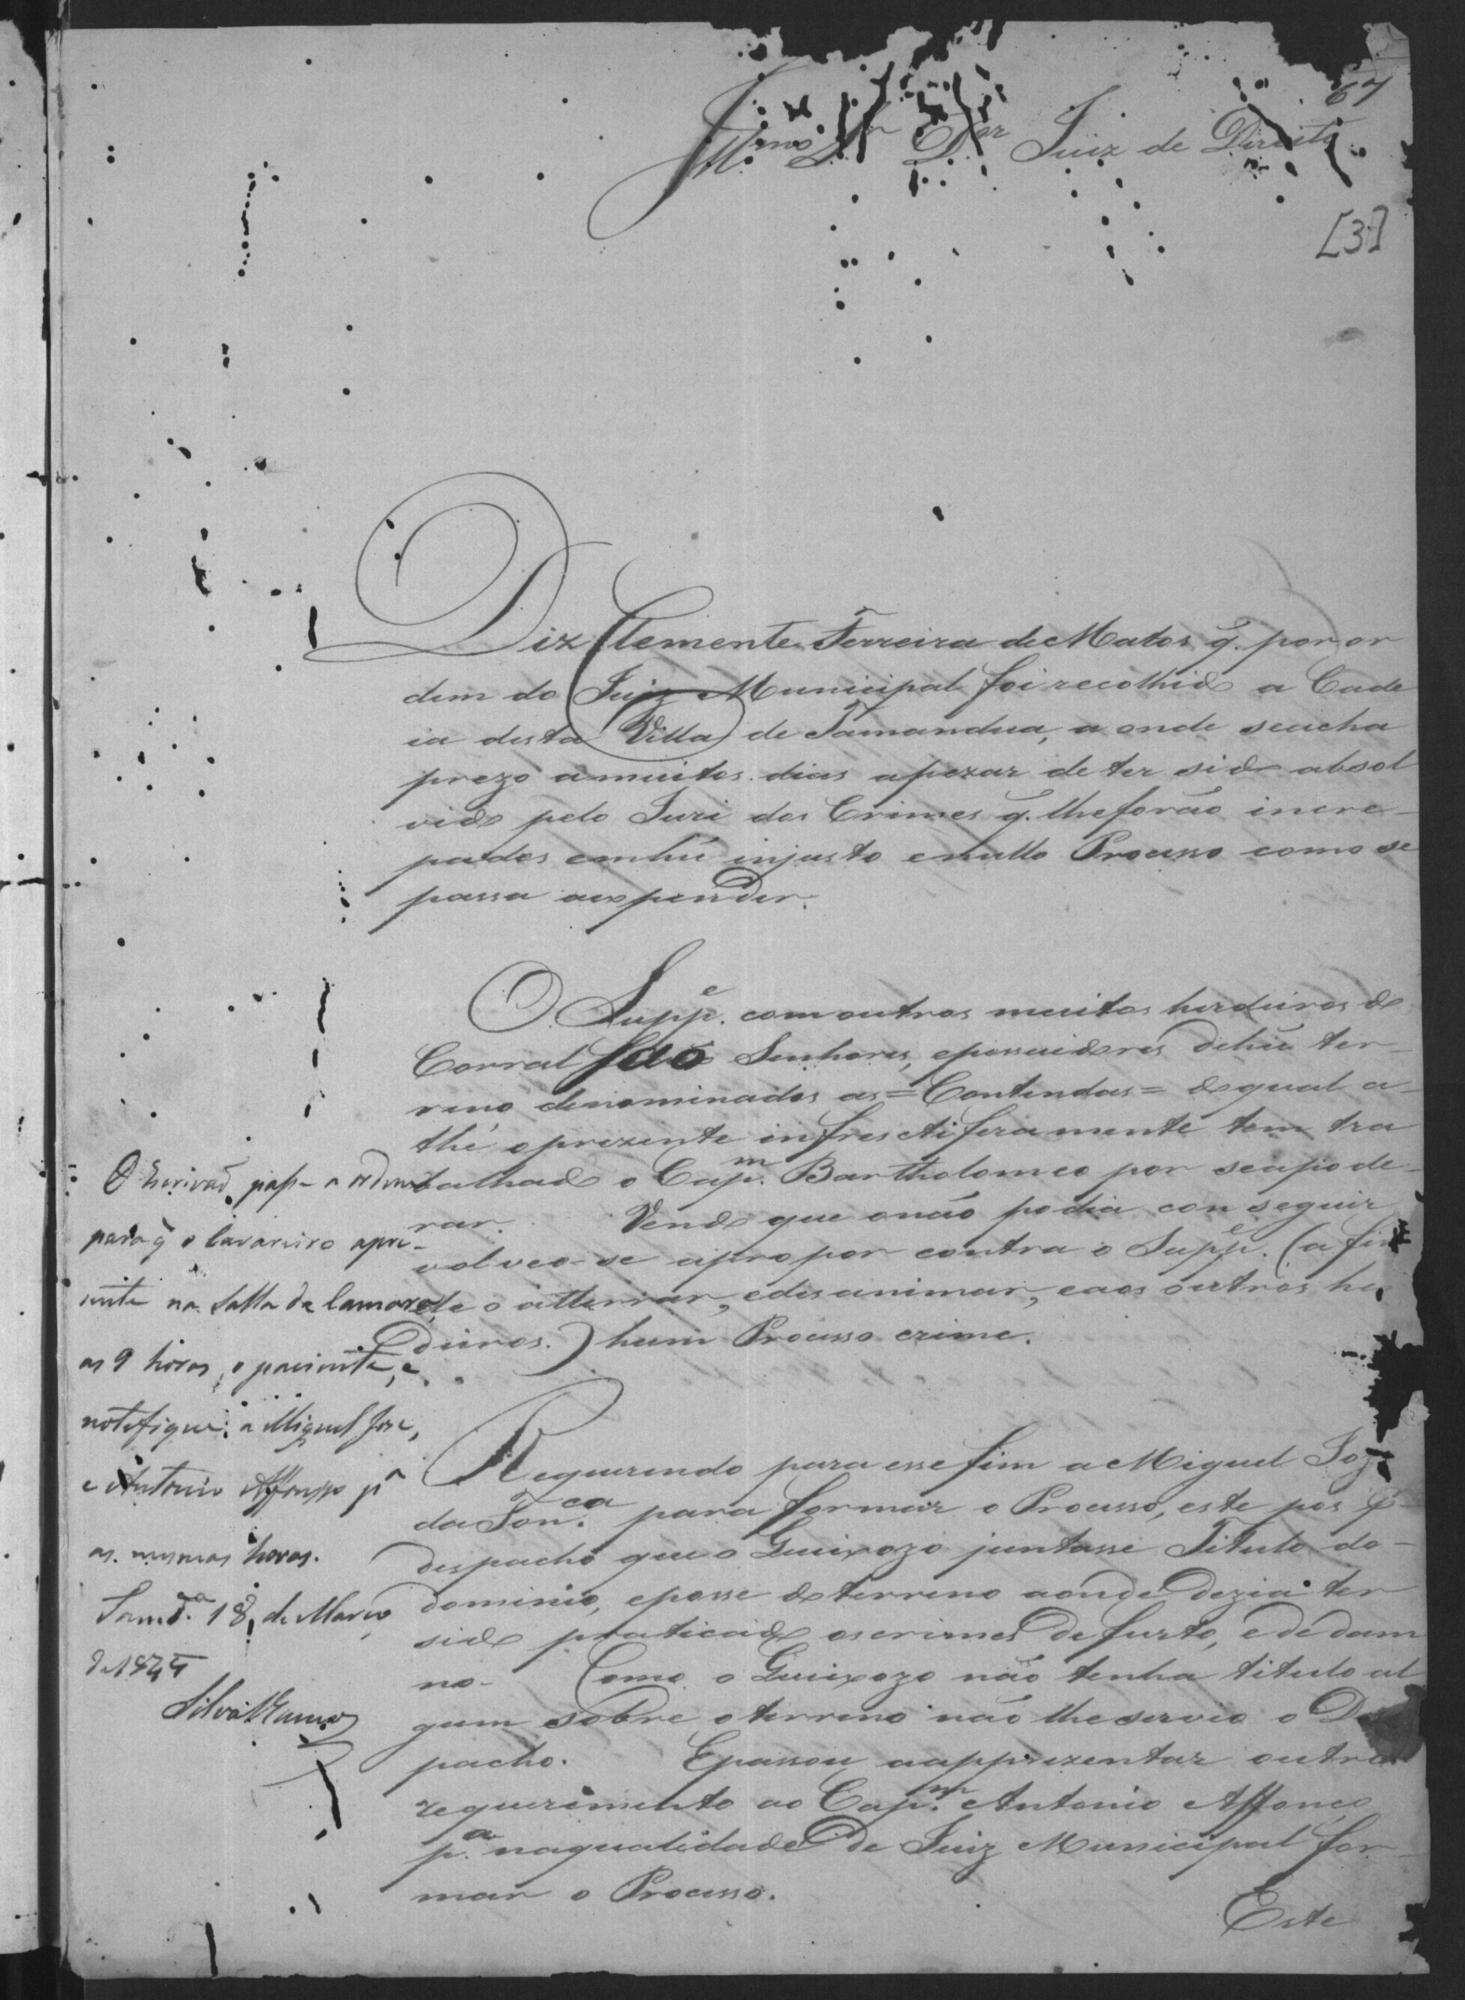 67
Ill.mo Sr. Dor Juiz de Direito
[3]
Diz Clemente Ferreira de Matos q̃. por or
dem do Juiz Municipal foi recolhido a Cade
ia desta Villa de Tamandua, a onde seacha
prezo amuitos dias apezar de ter sido absol
vido pelo Juri dos Crimes q̃. lheforão incre-
pados emhũ injusto enullo Processo como se
passa aexpender.
O Supp.e comoutros muitos herdeiros do
Corral são Senhores, epossuidores dehũ ter-
reno denominados as = Contendas = doqual a-
thé oprezente infructiferamente tem tra
balhado o Cap.m Bartholomeo por seapode-
rar. Vendo que onão podia con seguir
volveo-se apropor contra o Supp.e (a fim
de o atterrar, edesanimar, eaos outros her
deiros.) hum Processo crime.
Requerendo para esse fim a Miguel Joze
da Fon.ca para formar o Processo, este pos p-
despacho que o Queixozo juntasse Titulo do-
dominio, eposse doterreno aonde dezia ter
sido praticado oscrimes de furto, e de dam
no- Como o Queixozo não tenha titulo al
gum sobre oterreno não lhe servio o Des
pacho. Epassou aapprezentar outro
requerimento ao Cap.m Antonio Affonço
p.a naqualidade de Juiz Municipal for-
mar o Processo.
Este
O Escrivaõ passe a ordem
para q̃ o Carcereiro apre-
sente na Salla da Camara,
as 9 horas, o paciente, e
notefique a Miguel Jose,
e Antonio Affonso pa
as mesmas horas.
Tamd.a 18, de Março
de 1844